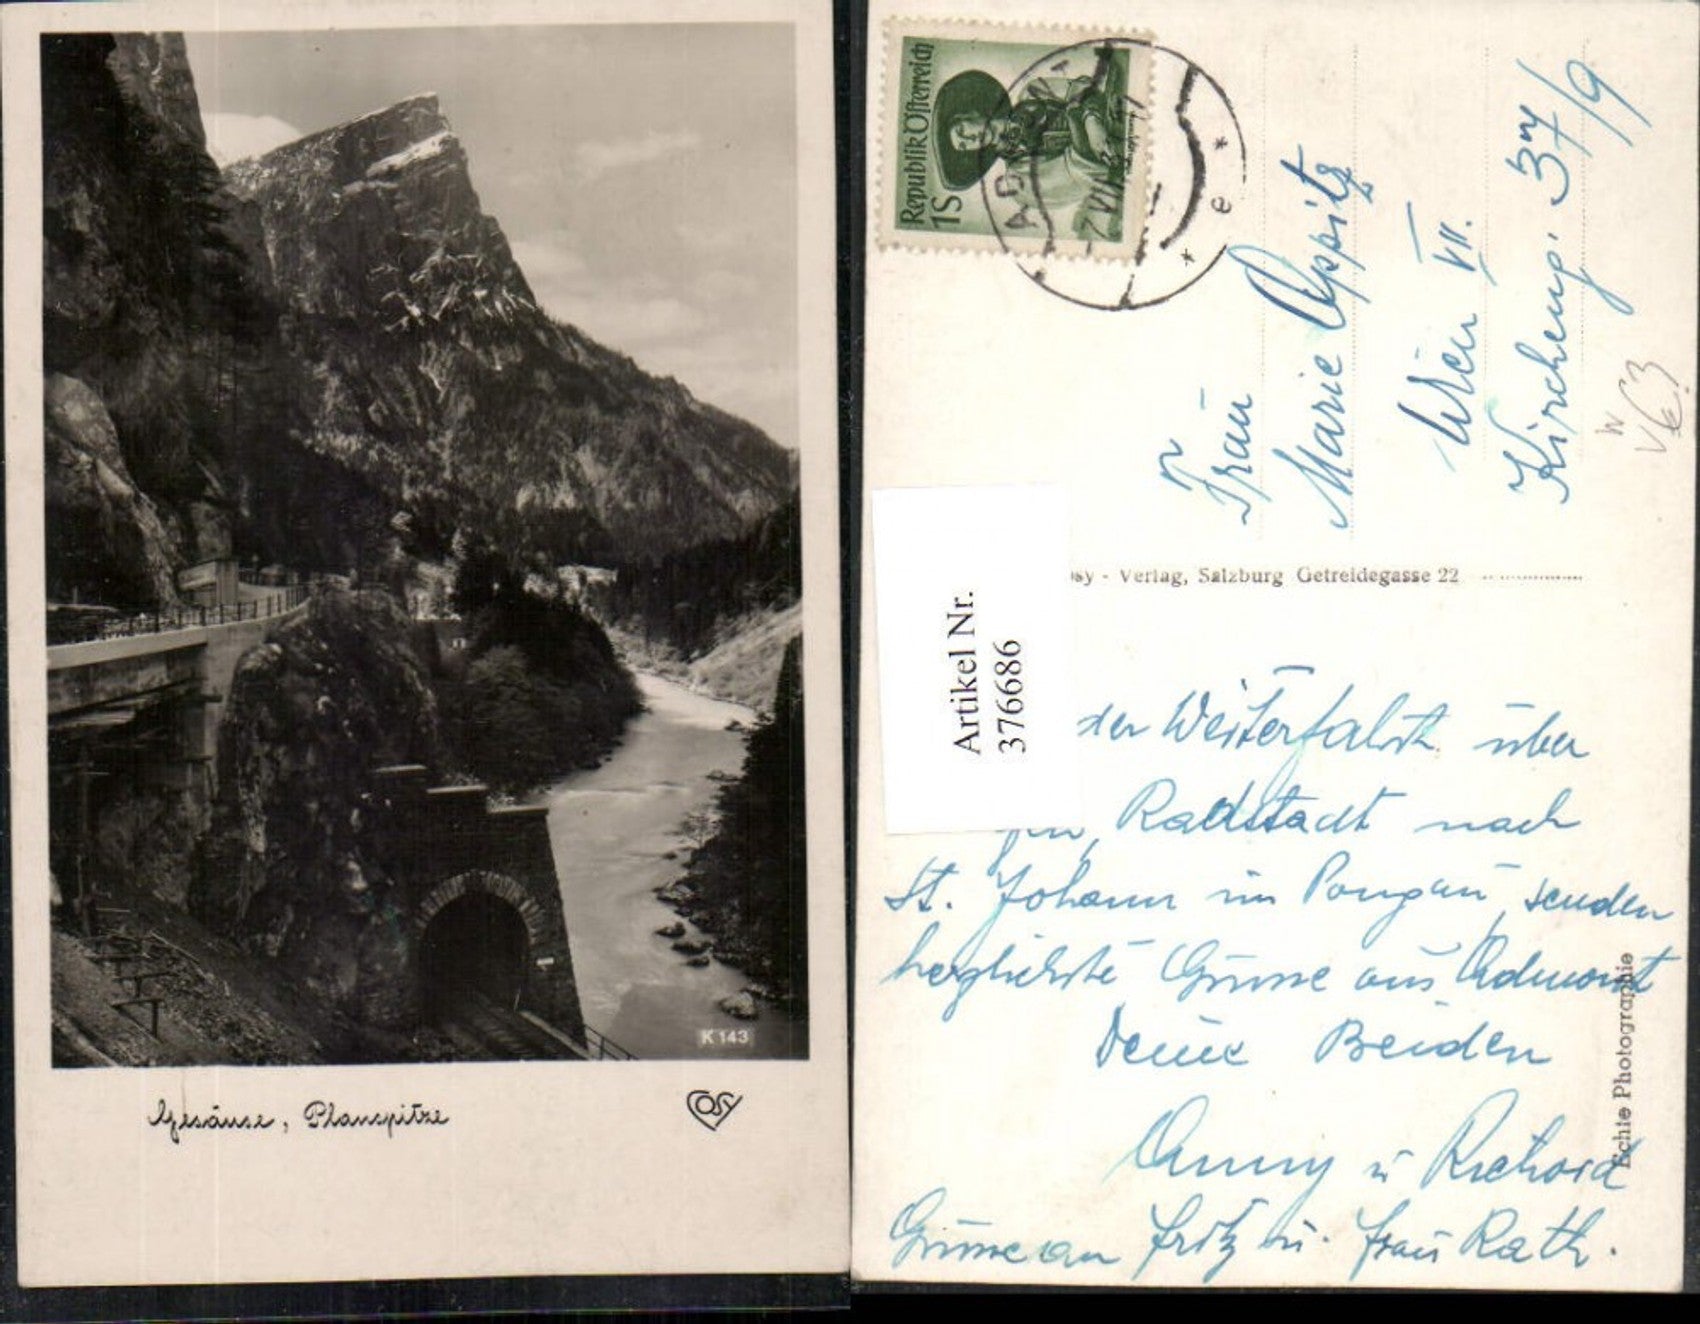 K 143
Gesäuse, Planspitze
COSY
Republik Österreich
1S
Frau
Marie Oppitz
Wien VII.
Kircheng. 37/9
Artikel Nr.
376686
osy - Verlag, Salzburg Getreidegasse 22
der Weiterfahrt über
Radstadt nach
St. Johann im Pongau, senden
herzlichste Grüsse aus Admont
Deine Beiden
Anny u Richard
Grüsse an Fritz u. Frau Rath.
Echte Photographie